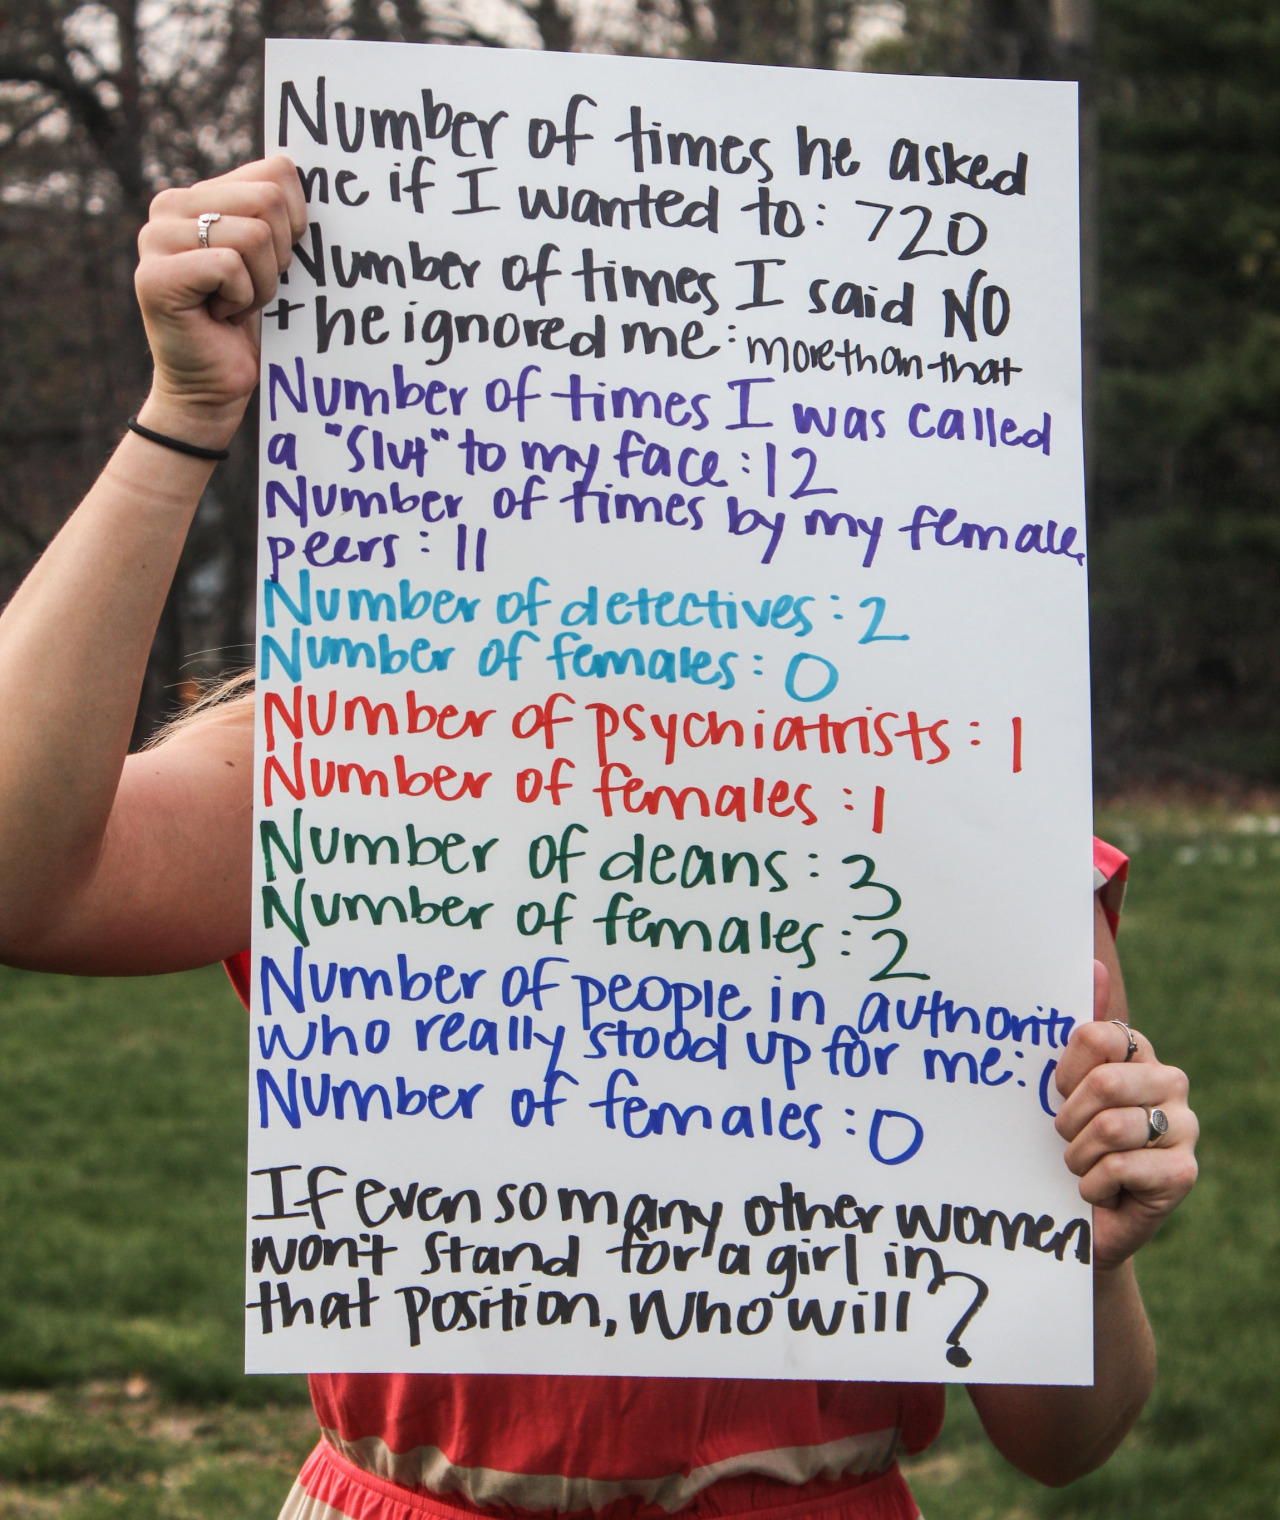 Number of times he asked
me if I wanted to: 720
Number of times I said NO
+ he ignored me: more than that
Number of times I was called
a "slut" to my face: 12
Number of times by my female
peers: 11
Number of detectives: 2
Number of females: 0
Number of psychiatrists: 1
Number of females: 1
Number of deans: 3
Number of females: 2
Number of people in authority
who really stood up for me:
Number of females: 0
If even so many other women
won't stand for a girl in
that position, who will?